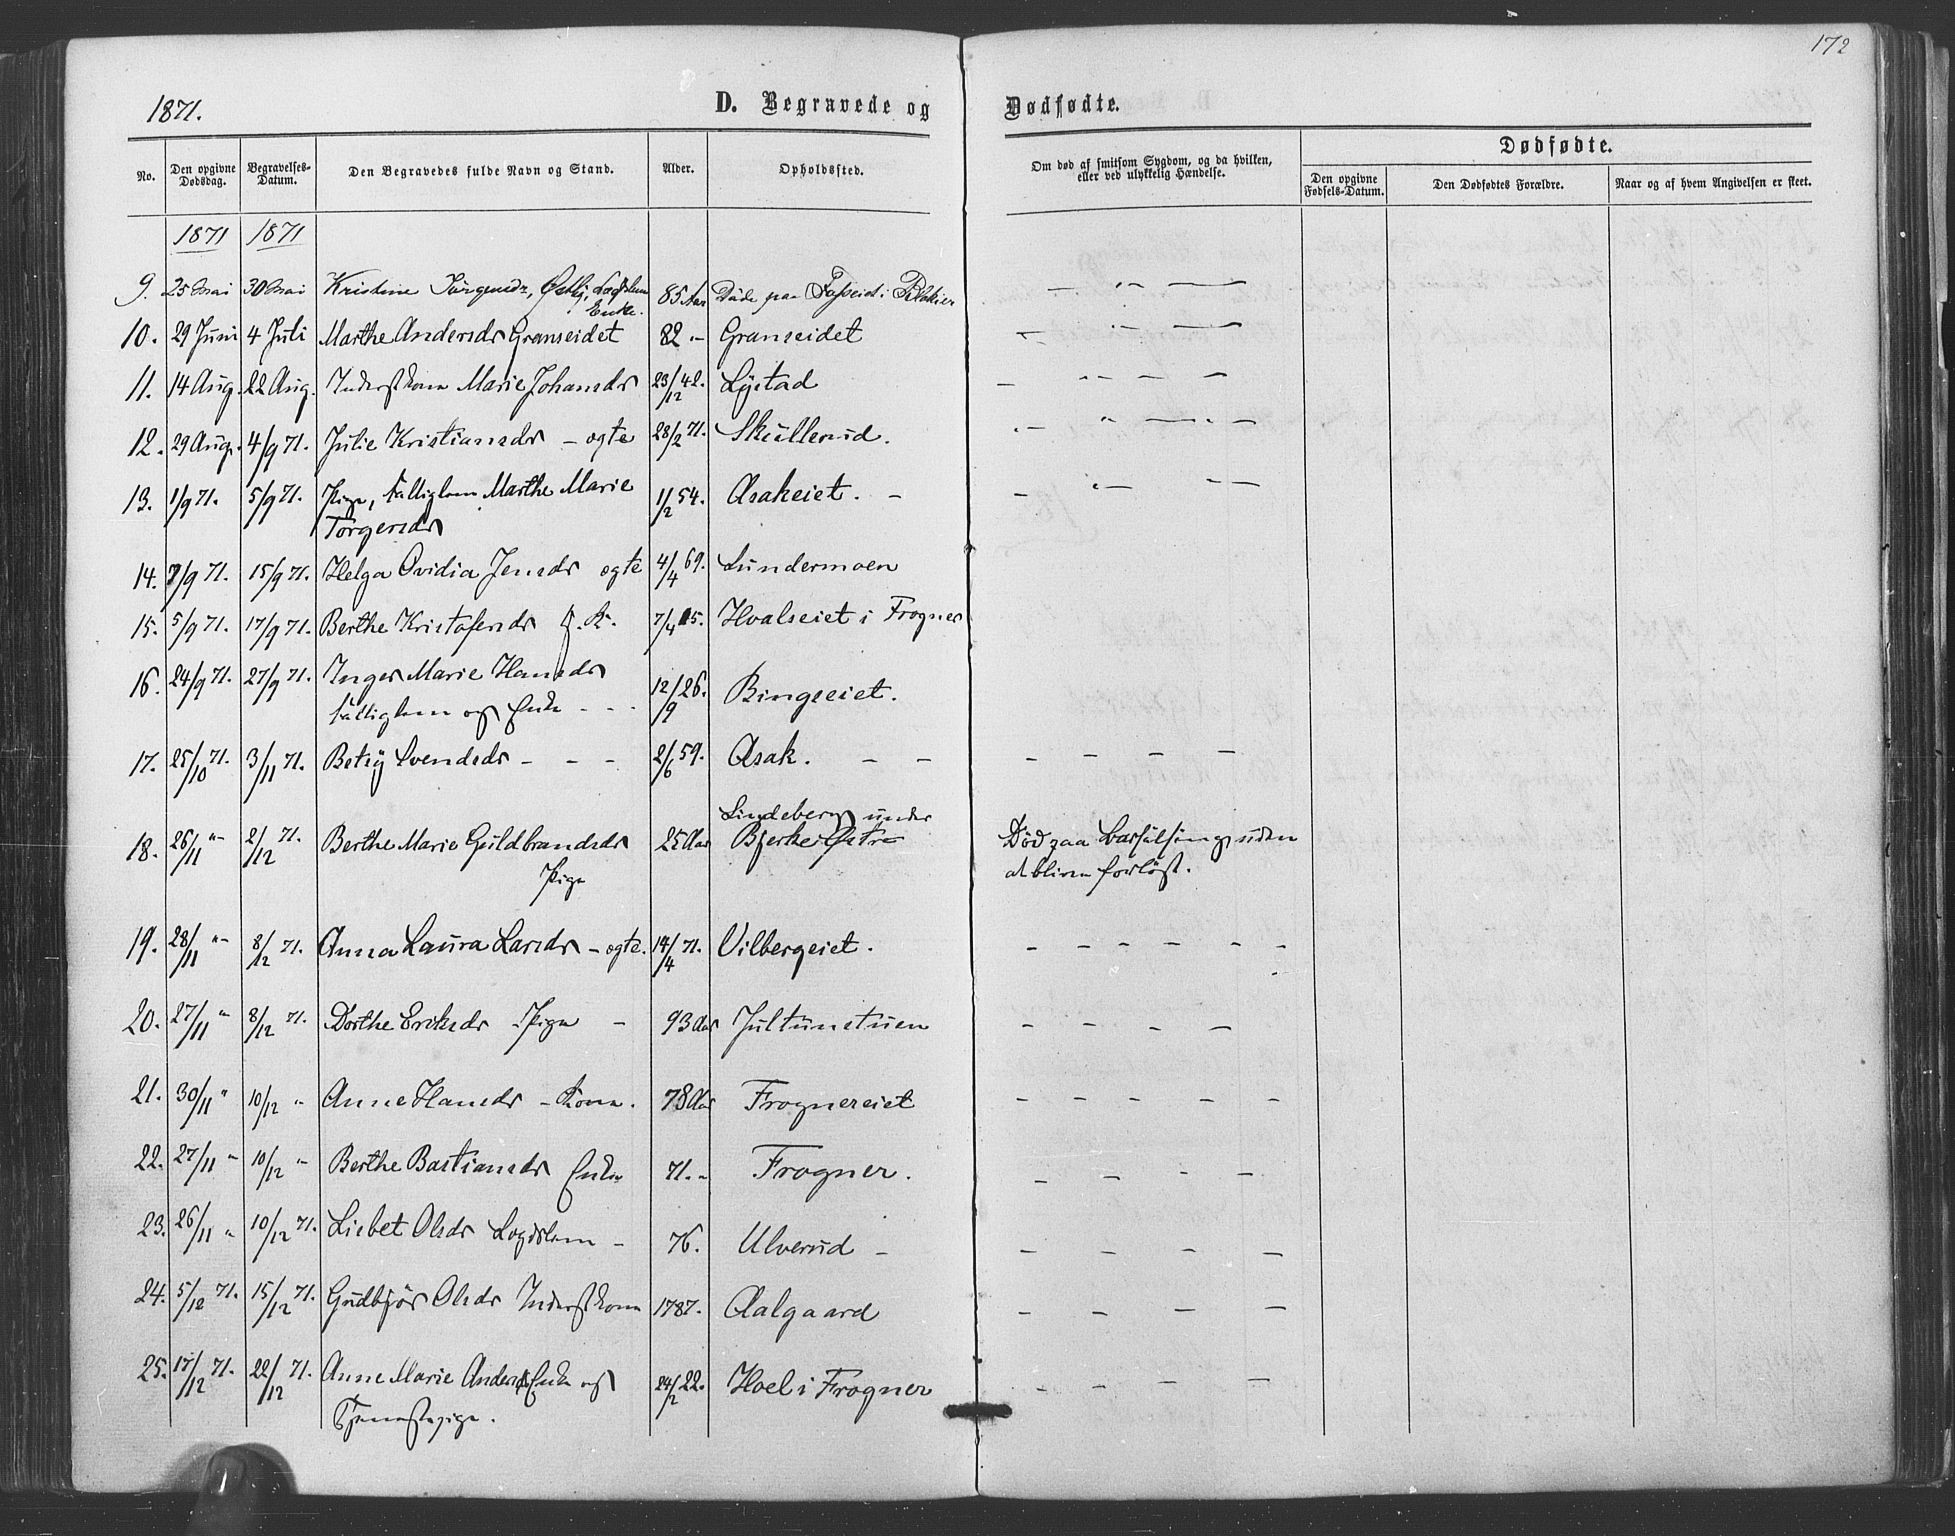 172
1871.
D. Begravede og Dødfødte.
No. Den opgivne Dødsdag. Begravelses-Datum. Den Begravedes fulde Navn og Stand. Alder. Opholdssted. Om død af smitsom Sygdom, og da hvilken, eller ved ulykkelig Hændelse. Dødfødte.
Den opgivne Fødsels-Datum. Den Dødfødtes Forældre. Naar og af hvem Angivelsen er skeet.
1871 1871
9. 25 Mai 30 Mai Kristine Jörgensdr, Østby, Lægdslem 85 Aar Døde paa i — " — —
Enke.
10. 29 Juni 4 Juli Marthe Andersdr Granseidet 82 "- Granseidet — " — —
11. 14 Aug. 22 Aug. Inderstkone Marie Johansdr 23/12 42. Lystad — " — — —
12. 29 Aug. 4/9 71. Julie Kristiansdr – ogte 28/2 71. Skullerud. " — " — — —
13. 1/9 71. 5/9 71. Pige, Fattiglem Marthe Marie 1/2 54. Asakeiet. – — " — " —
Torgersdr
14. 7/9 71. 15/9 71. Helga Ovidia Jensdr ogte 4/4 69. Lundermoen
15. 5/9 71. 17/9 71. Berthe Kristofersdr G. K. 7/4 15. Hvalseiet i Frogner
16. 24/9 71. 27/9 71. Inger Marie Hansdr 12/9 26. Bingseiet.
Fattiglem og Enke - - -
17. 25/10 71. 3/11 71. Betsy Svendsdr – – – 2/6 59. Asak. – – – – – –
Lindeberg under
18. 26/11 "- 2/12 71. Berthe Marie Guldbrandsdr 25 Aar Bjerke Østre Död paa Barselseng, uden
Pige at blive forløst.
19. 28/11 "- 8/12 71. Anna Laura Larsdr – ogte. 14/4 71. Vilbergeiet. – – – – – –
20. 27/11 " 8/12 71. Dorthe Eriksdr Pige – 93 Aar Jultunstuen – – – –
21. 30/11 " 10/12 " Anne Hansdr – Kone. 78 Aar Frognereiet – – – – –
22. 27/11 "- 10/12 "- Berthe Bastiansdr Enke 71. "- Frogner. – – – –
23. 26/11 " 10/12 71. Lisbet Olsdr Lægdslem – 76. Ulverud – – – – –
24. 5/12 71. 15/12 71. Gudbjør Olsdr Inderstkone 1787. Aalgaard – – – –
25. 17/12 71. 22/12 71. Anne Marie Andersdr Enke og 24/2 22. Hoel i Frogner – – – –
Tjenestepige.